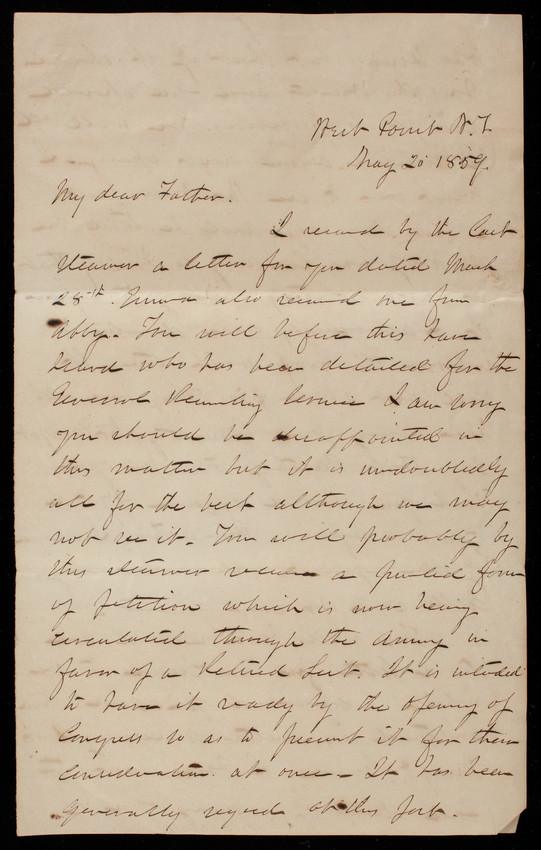 West Point N.Y.
May 20 1859
My dear Father.
I received by the last
steamer a letter from you dated March
28th. Emma also received one from
Abby. You will before this have
heard who has been detailed for the
General Recruiting Service I am sorry
you should be disappointed in
this matter but it is undoubtedly
all for the best although we may
not see it. You will probably by
this steamer receive a printed form
of petition which is now being
circulated through the Army in
favor of a Retired List. It is intended
to have it ready by the opening of
Congress so as to present it for their
consideration at once. It has been
generally signed at this post.